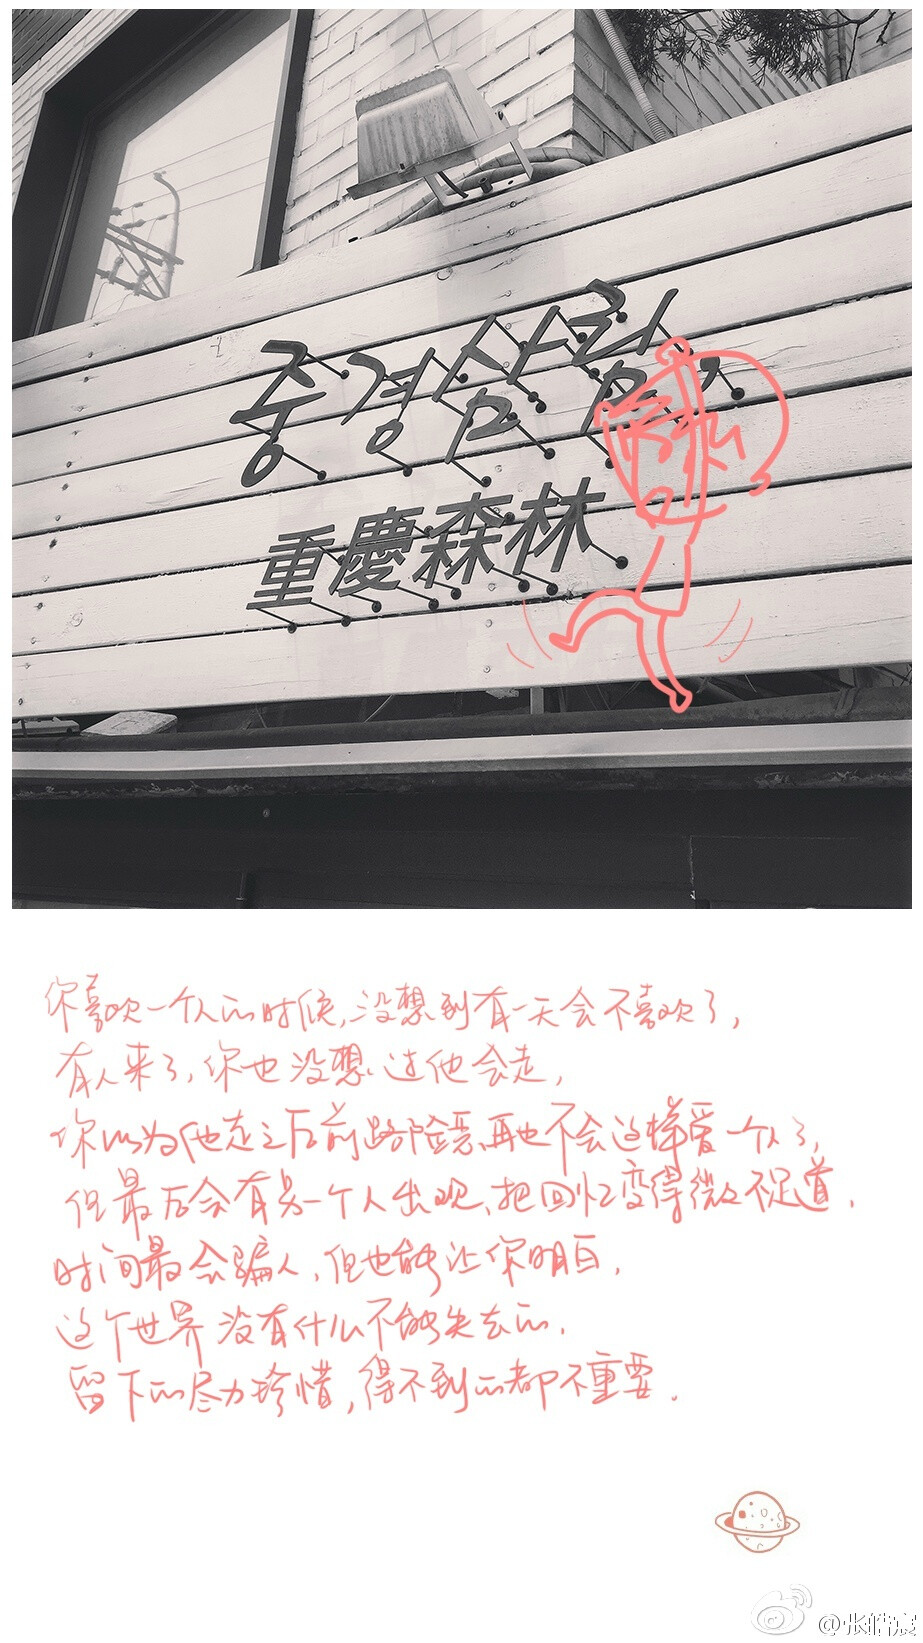 중경삼림
重慶森林
你喜欢一个人的时候,没想到有一天会不喜欢了,
有人来了,你也没想过他会走,
你以为他走之后前路险恶,再也不会这样爱一个人了,
但最后会有另一个人出现、把回忆变得微不足道.
时间最会骗人,但也能让你明白,
这个世界没有什么不能失去的.
留下的尽力珍惜,得不到的都不重要.
@张皓宸